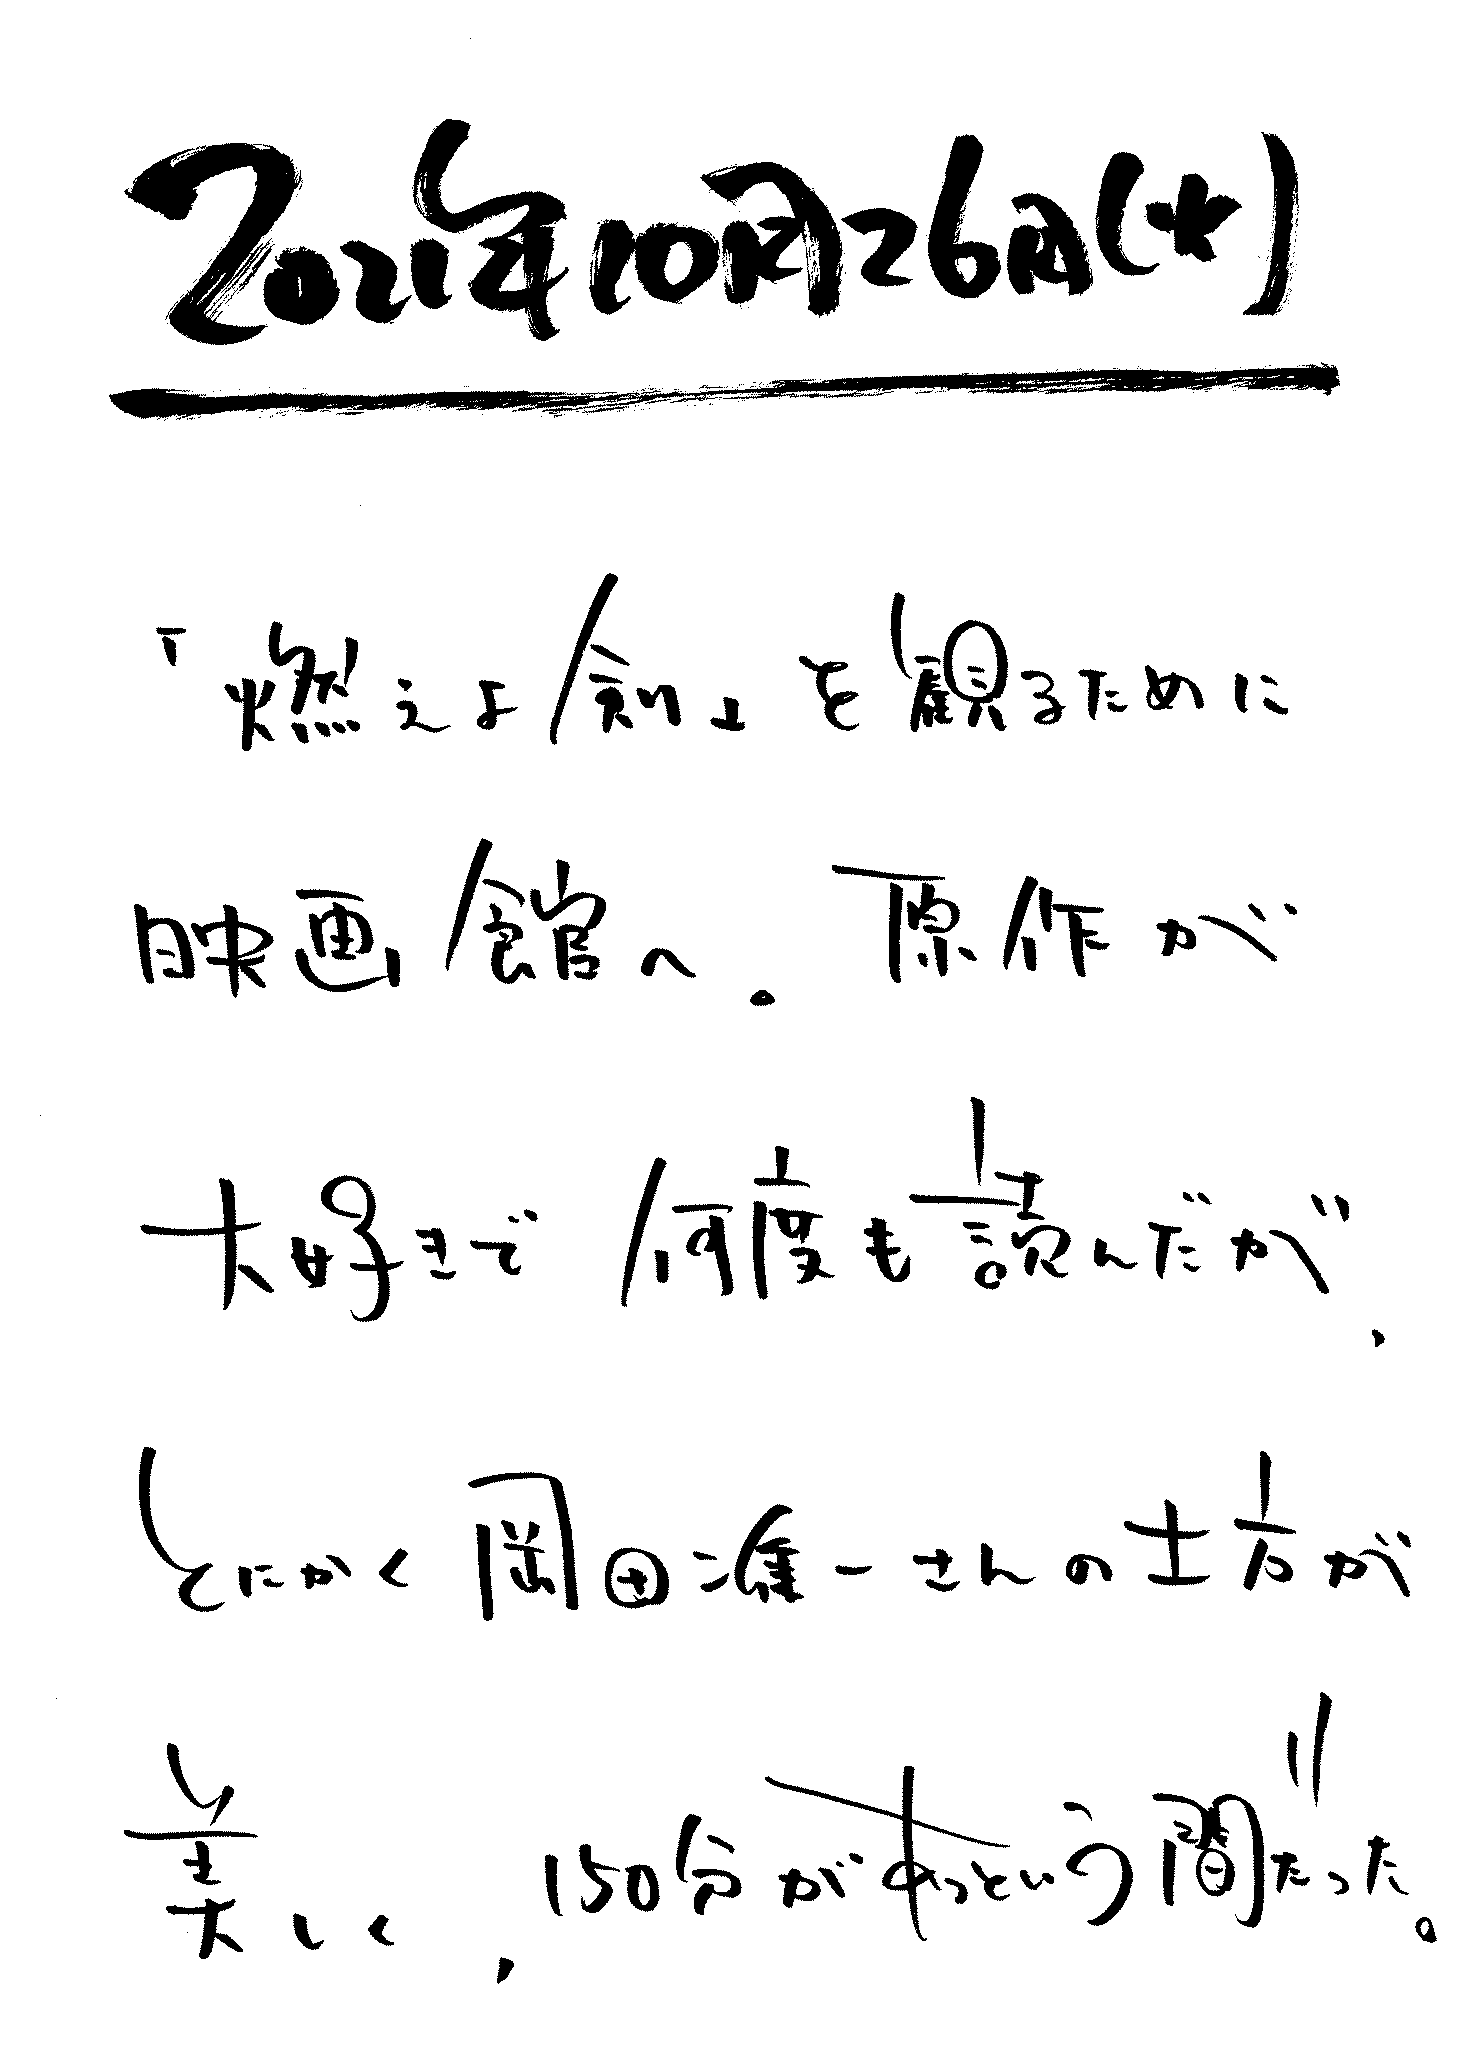 2021年10月26日(火)
「燃えよ剣」を観るために
映画館へ。原作が
大好きで何度も読んだが、
とにかく岡田准一さんの土方が
美しく、150分があっという間だった。